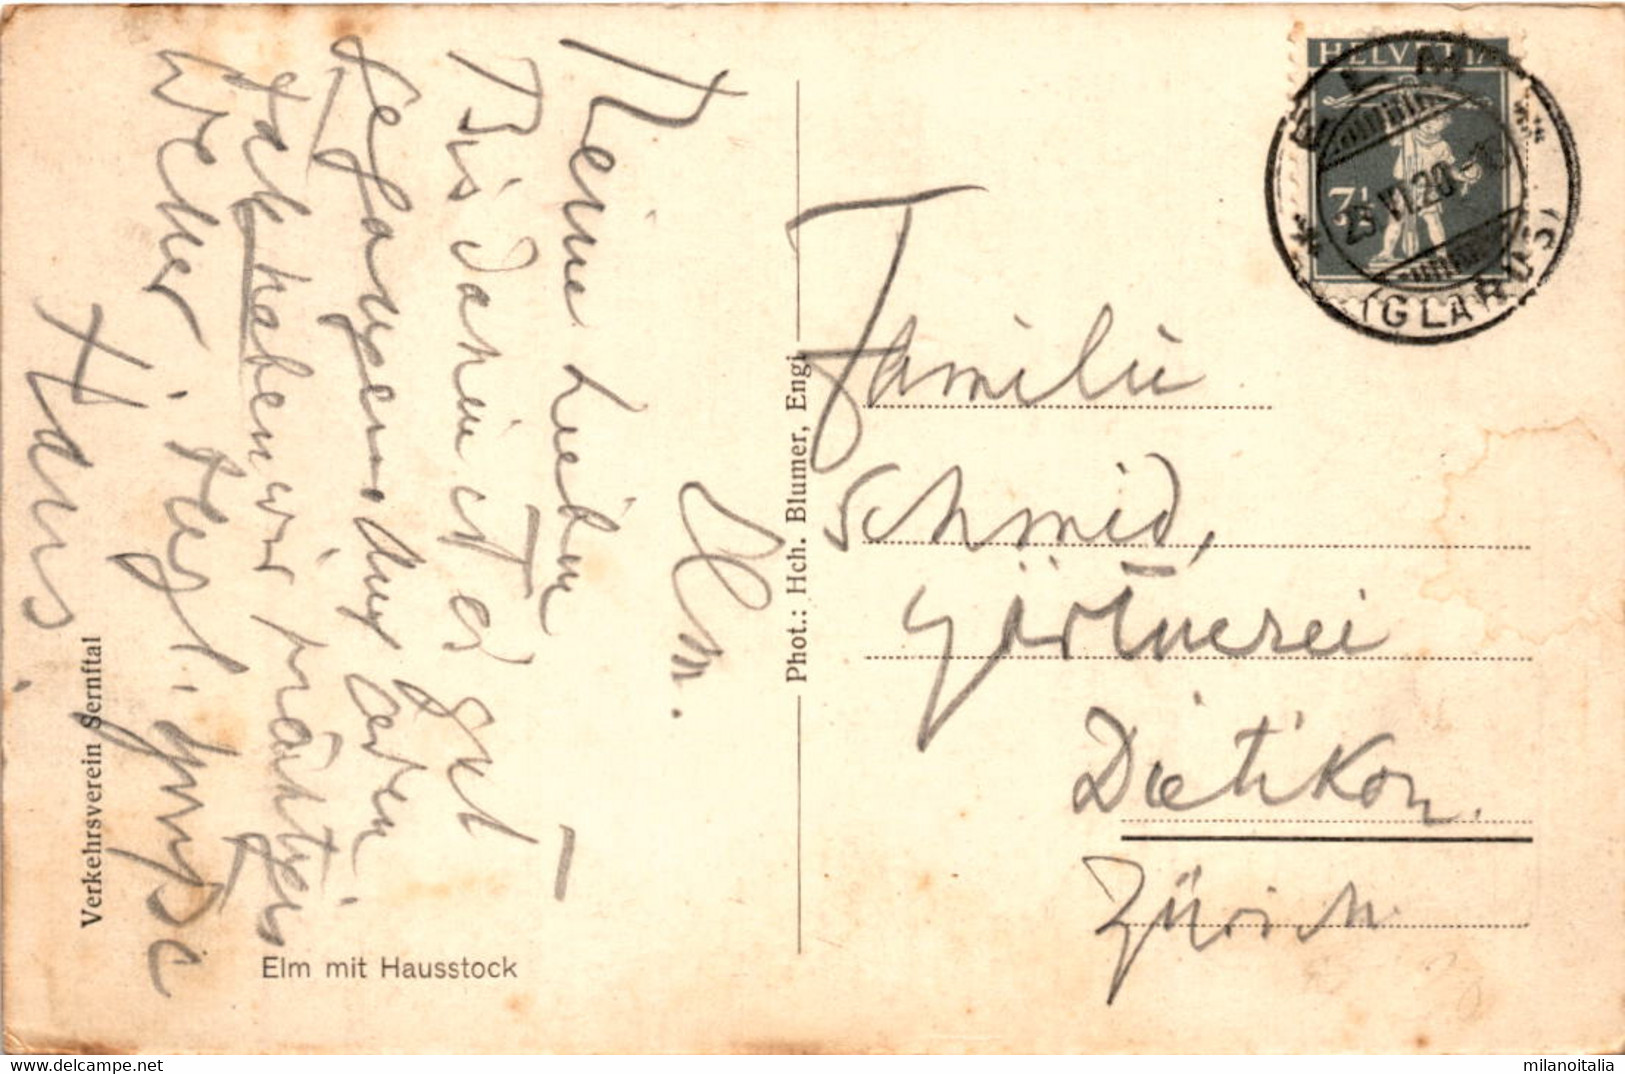 Elm.
Meine Lieben
Bis dahin ist es gut
gegangen. Aus
Jetzt haben wir prächtiges
Wetter. Herzl. Grüsse
Hans.
Verkehrsverein Sernftal
Elm mit Hausstock
Phot.: Hch. Blumer, Engi
HELVETIA
ELM
25 VI.20
(GLARUS)
Familie
Schmid,
Gärtnerei
Dietikon.
Zürich
milanoitalia